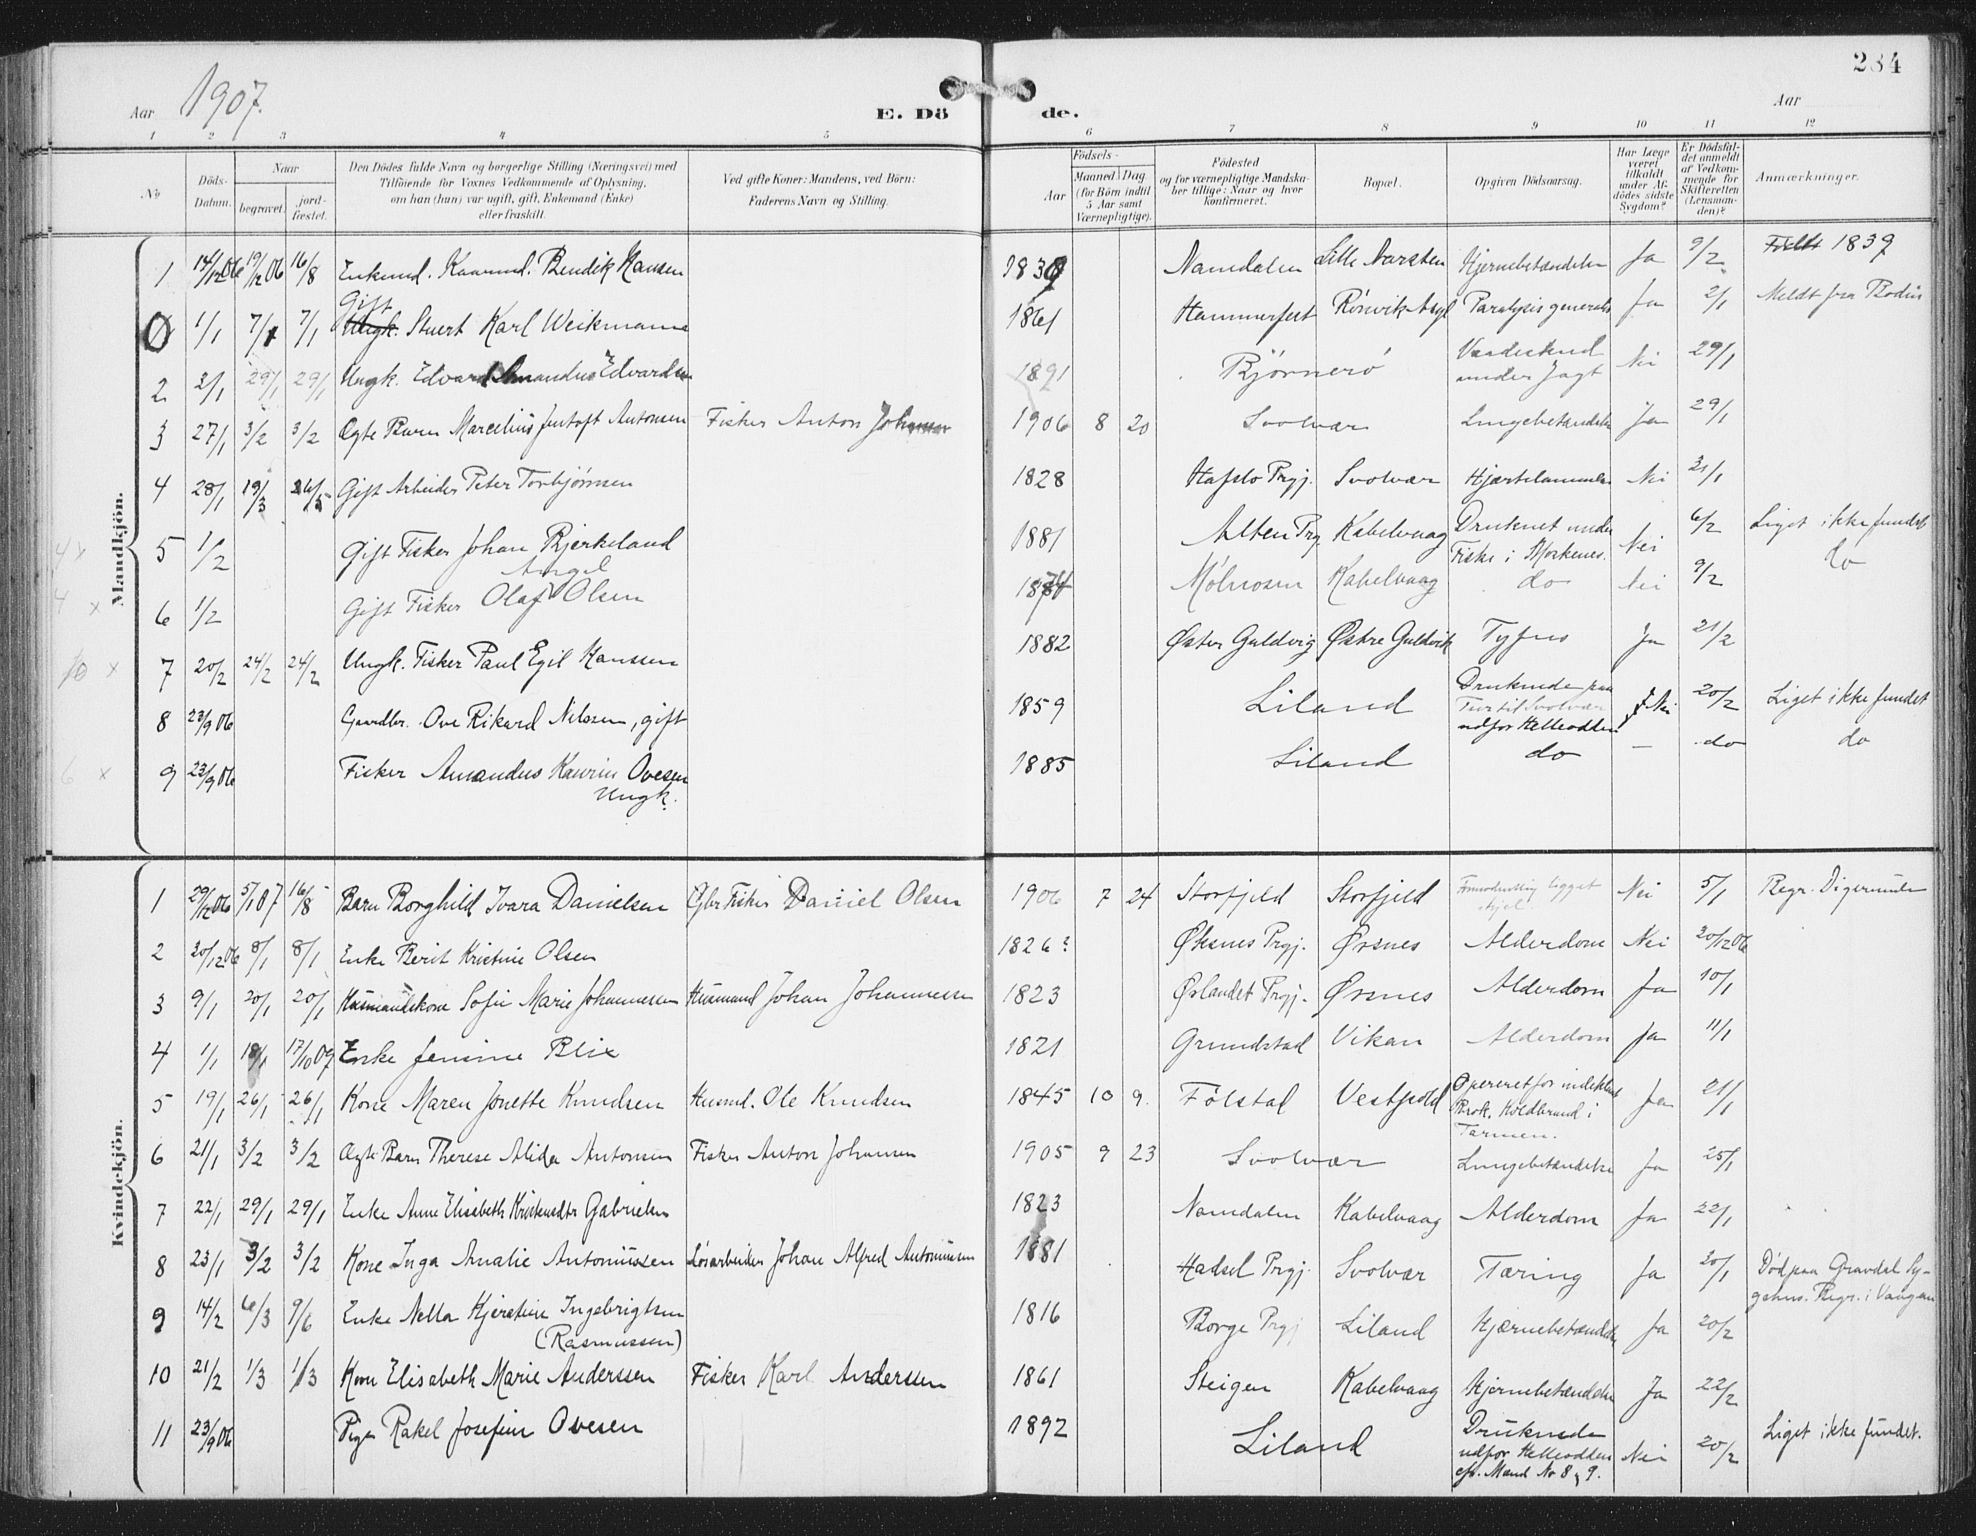 284
Aar 1907.
E. Dö de.
Aar
1 2 3 4 5 6 7 8 9 10 11 12
No
Döds-Datum.
Naar
begravet.
jord-fæstet.
Den Dödes fulde Navn og borgerlige Stilling (Næringsvei) med
Tilföiende for Voxnes Vedkommende af Oplysning,
om han (hun) var ugift, gift, Enkemand (Enke)
eller fraskilt.
Ved gifte Koner: Mandens, ved Börn:
Faderens Navn og Stilling.
Födsels-
Aar
Maaned Dag
(for Börn indtil
5 Aar samt
Værnepligtige).
Födested
og for værnepligtige Mandska-
ber tillige: Naar og hvor
konfirmeret.
Bopæl.
Opgiven Dödsaarsag.
Har Læge
været
tilkaldt
under Af-
dödes sidste
Sygdom?
Er Dödsfal-
det anmeldt
af Vedkom-
mende for
Skifteretten
(Lensman-
den)?
Anmærkninger.
Mandkjön.
1 14/12 06 19/12 06 16/8 Enkemd. Kaarmd. Bendik Hansen 1839 Namdalen Lille Narsten Hjernebetændelse Ja 9/2 Født 1839
Gift
0 1/1 7/1 7/1 Ungk. Stuert Karl Weikmann 1861 Hammerfest Rönvik Asyl Paralysis generalis Ja 2/1 Meldt fra Bodin
2 2/1 29/1 29/1 Ungk. Edvard Amandus Edvardsen 1891 Bjørnerö Vaadeskud under Jagt Nei 29/1
3 27/1 3/2 3/2 Ægte Barn Marcelius Jentoft Antonsen Fisker Anton Johansen 1906 8 20 Svolvær Lungebetændelse Ja 29/1
4 28/1 19/3 26/5 Gift Arbeider Peter Torbjørnsen 1828 Hafslo Prgj. Svolvær Hjærtelammelse Nei 31/1
5 1/2 Gift Fisker Johan Bjerkeland 1881 Alten Prg. Kabelvaag Druknet under Fiske i Morkenes. Nei 6/2 Liget ikke fundet
Angel
6 1/2 Gift Fisker Olaf Olsen 1874 Mölnosen Kabelvaag do Nei 9/2 do
7 20/2 24/2 24/2 Ungk. Fisker Paul Egil Hanssen 1882 Øster Guldvig Østre Guldvik Tyfus Ja 21/2
8 23/9 06 Gaardbr. Ove Rikard Nilssen, gift 1859 Liland Druknede paa Tur til Svolvær udfor Helleodden Nei 20/2 Liget ikke fundet
9 23/9 06 Fisker Amandus Kaurin Ovesen 1885 Liland do — do do
Ungk.
4 x
4 x
10 x
6 x
Kvindekjön.
1 29/12 06 5/1 07 16/8 Barn Borghild Ivara Danielsen Gbr Fisker Daniel Olsen 1906 7 24 Storfjeld Storfjeld Formodentlig ligget ihjel Nei 5/1 Begr. Digermulen
2 20/12 06 8/1 8/1 Enke Berit Kristine Olsen 1826? Øksnes Prgj. Ørsnes Alderdom Nei 30/12 06
3 9/1 20/1 20/1 Husmandskone Sofie Marie Johannessen Husmand Johan Johannessen 1823 Ørlandet Prgj. Ørsnes Alderdom Ja 10/1
4 1/1 18/1 17/10 09 Enke Jensine Blix 1821 Grundstad Vikan Alderdom Ja 11/1
5 19/1 26/1 26/1 Kone Maren Jonette Knudsen Husmd. Ole Knudsen 1845 10 9. Følstad Vestfjold Opereret for indeklemt Brok. Koldbrand i Tarmen. Ja 21/1
6 21/1 3/2 3/2 Ægte Barn Therese Alida Antonsen Fisker Anton Johansen 1905 9 23 Svolvær Lungebetændelse Ja 25/1
7 22/1 29/1 29/1 Enke Anne Elisabeth Kristensdtr Gabrielsen 1823 Namdalen Kabelvaag Alderdom Ja 22/1
8 23/1 3/2 3/2 Kone Inga Amalie Antoniussen Løsarbeider Johan Alfred Antoniussen 1881 Hadsel Prgj. Svolvær Tæring Ja 30/1 Död paa Gravdal Sy-
gehus. Begr. i Vaagan
9 14/2 6/3 9/6 Enke Nella Kjerstine Ingebrigtsen 1816 Borge Prgj Liland Hjærnebetændelse Ja 20/2
(Rasmussen)
10 21/2 1/3 1/3 Kone Elisabeth Marie Anderssen Fisker Karl Anderssen 1861 Steigen Kabelvaag Hjernebetændelse Ja 22/2
11 23/9 06 Pige Rakel Josefine Ovesen 1892 Liland Druknede udfor Helleodden cfr. Mand No 8 & 9. Nei 20/2 Liget ikke fundet.